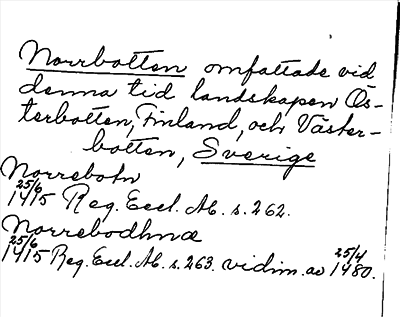 Norrbotten omfattade vid
denna tid landskapen Ös-
terbotten, Finland, och Väster-
botten, Sverige
Norrebotn
25/6 1415 Reg. Eccl. Ab. s. 262.
Norrebodhnæ
25/6 1415 Reg. Eccl. Ab. s. 263. vidim. av 25/4 1480.